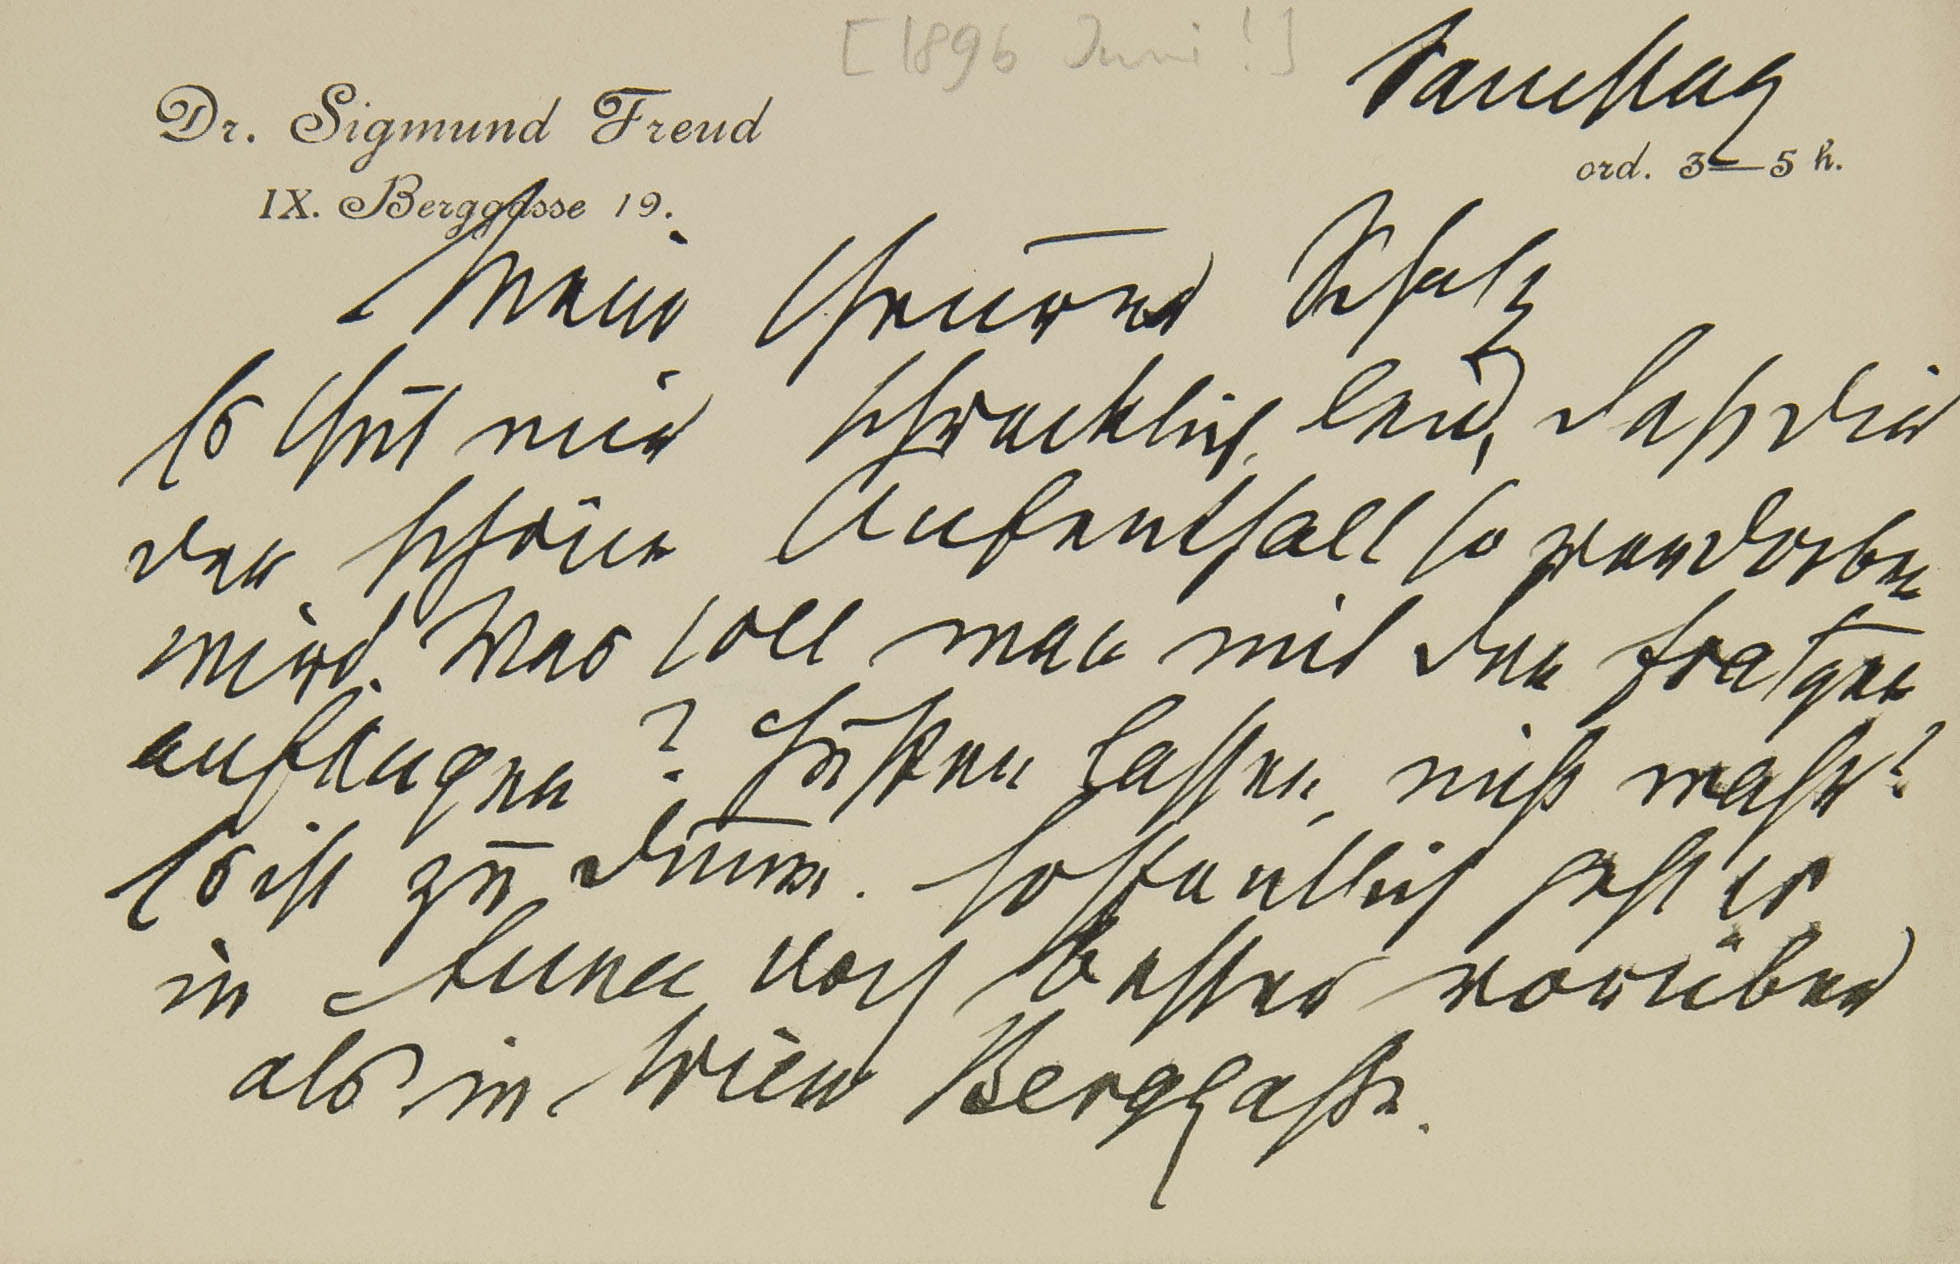 [1896 Juni!]
Samstag
Dr. Sigmund Freud
ord. 3–5 h.
IX. Berggasse 19.
Mein theurer Schatz
Es thut mir schrecklich leid, daß dir
der schöne Aufenthalt so verdorben
wird. Was soll man mit den Fratzen
anfangen? Husten lassen, nicht wahr?
Es ist zu dumm. Hoffentlich geht es
in Aussee doch besser vorüber
als in Wien Berggasse.